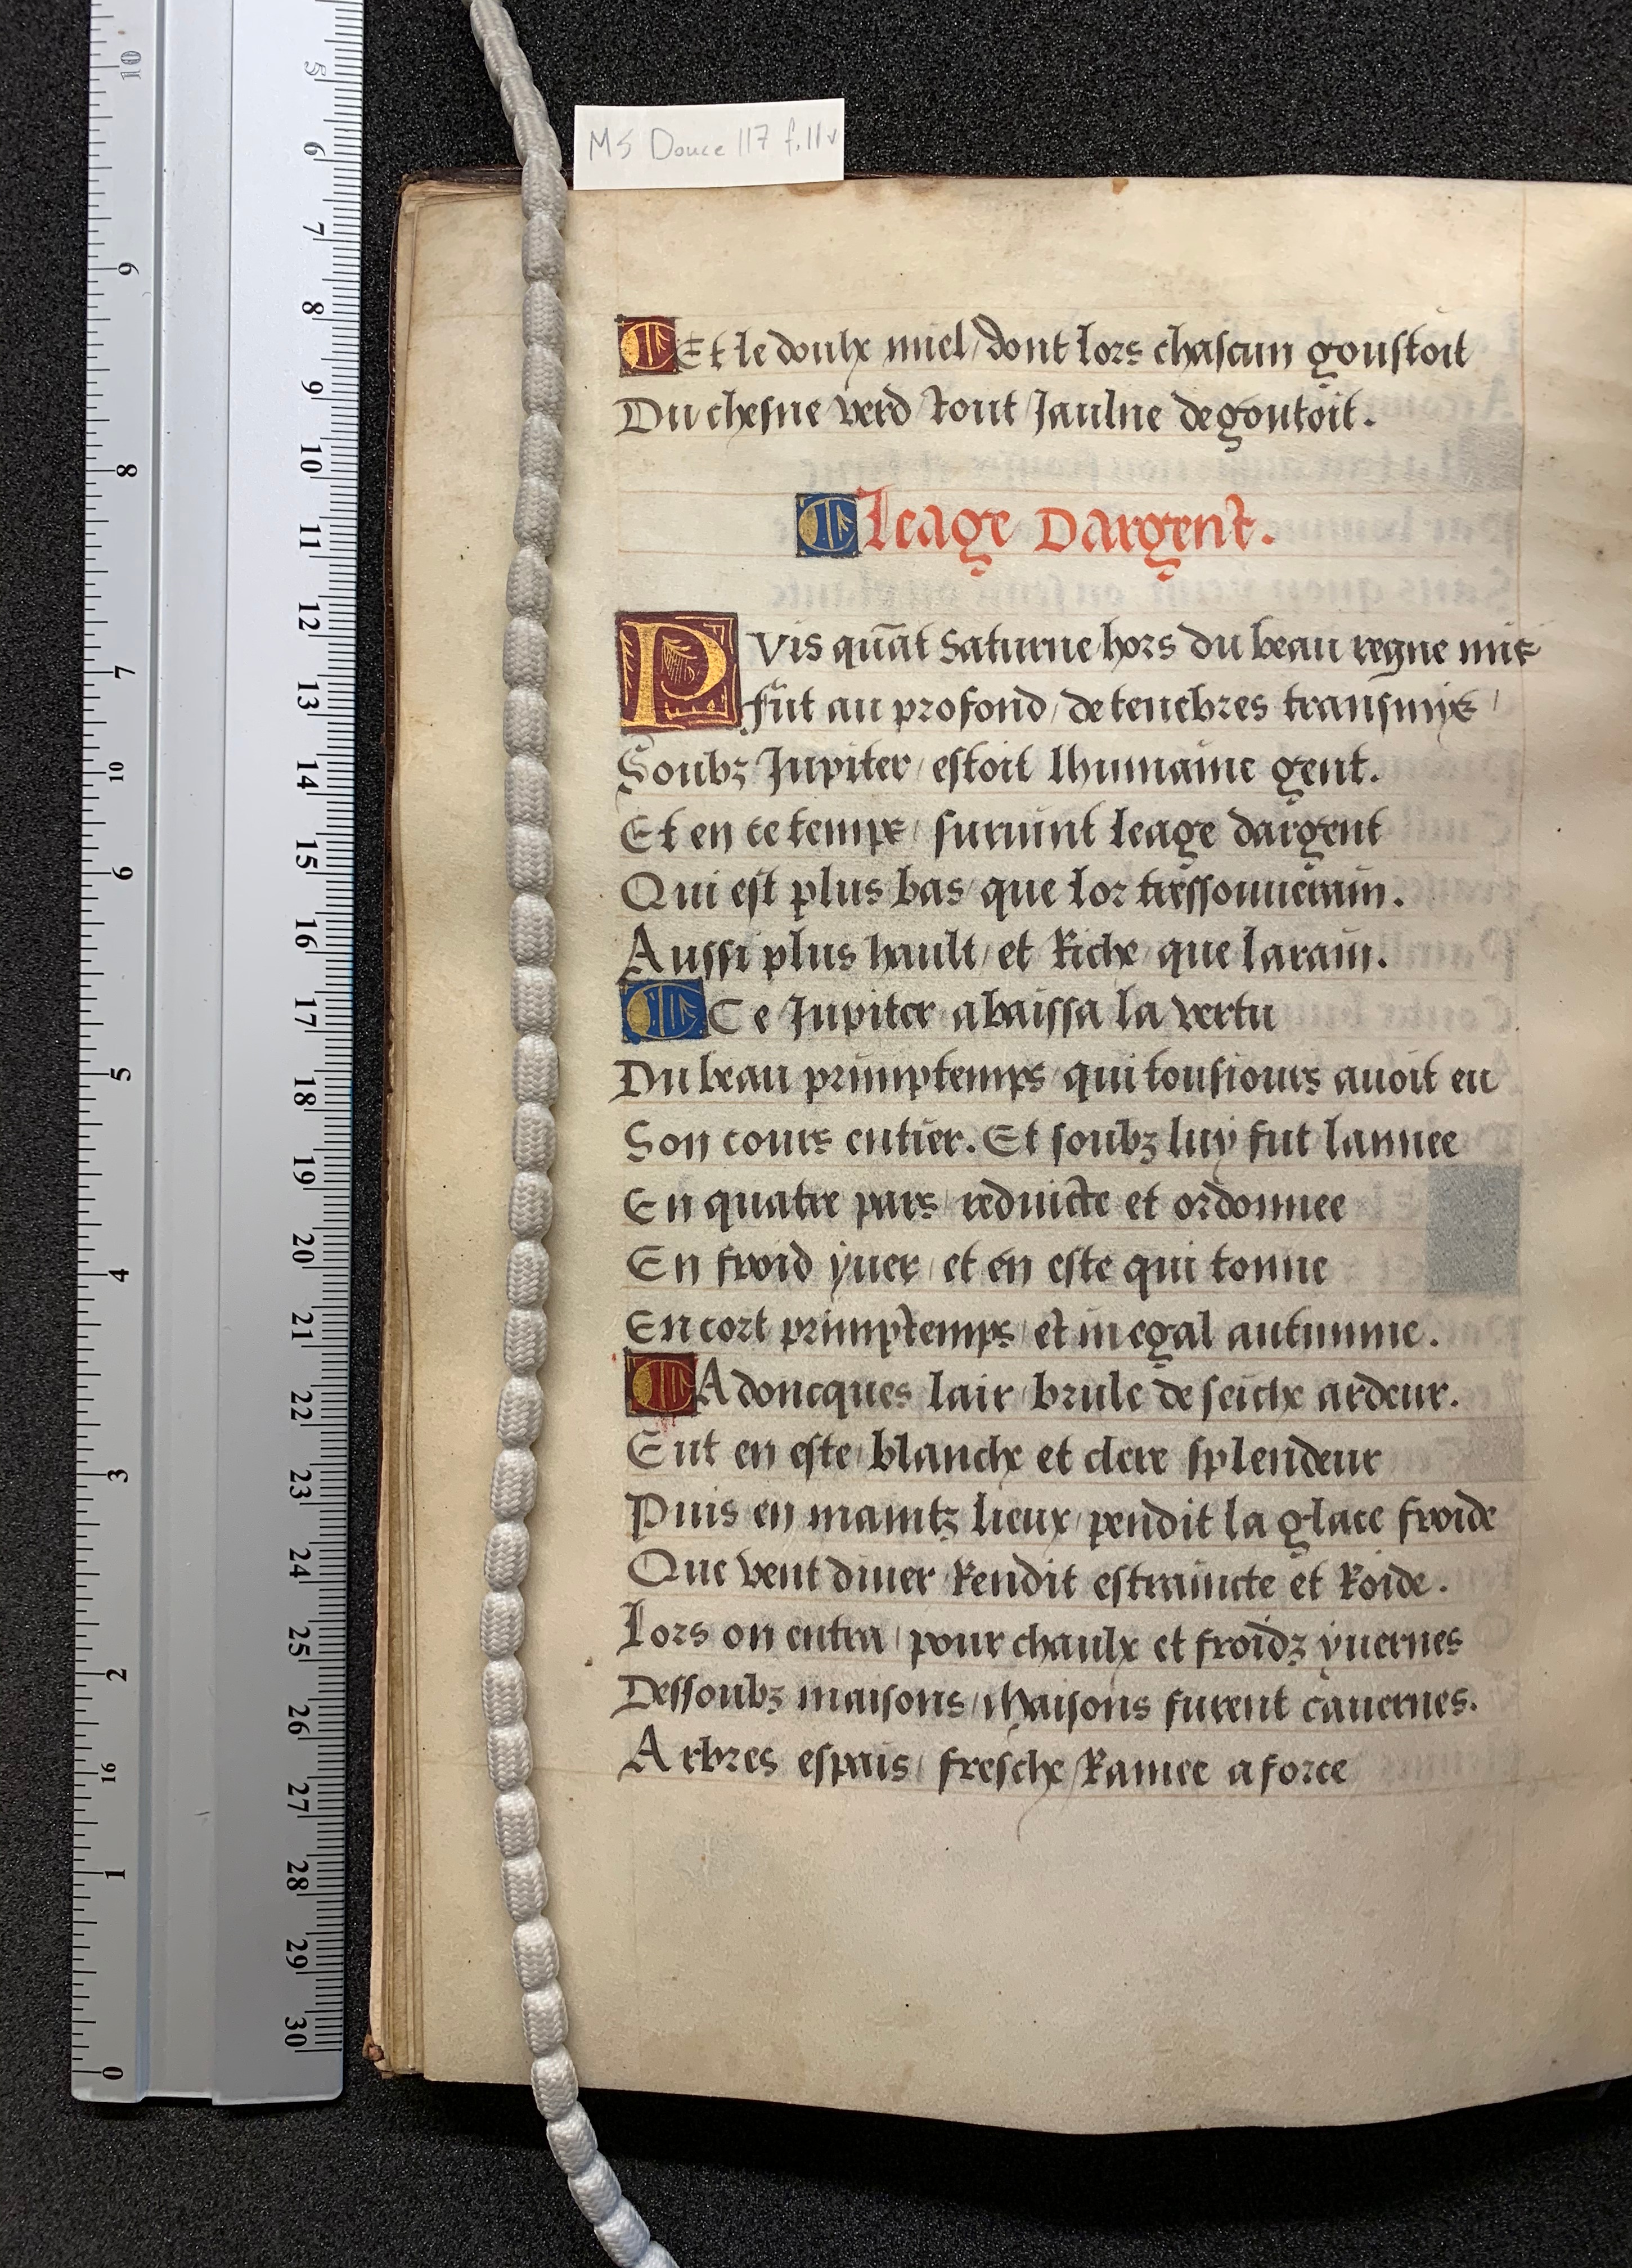 MS Douce 117 f.11v
Et le doulx miel / dont lors chascun goustoit
Du chesne verd tout Jaulne degoutoit.
Leage Dargent.
PVis quāt Saturne hors du beau regne mis
fut au profond / de tenebres transmys /
Soubz Jupiter / estoit lhumaine gent.
Et en ce temps / suruint leage dargent
Qui est plus bas / que lor tressouuerain.
Aussi plus hault / et Riche / que larain.
Ce Jupiter abaissa la vertu
Du beau primptemps / qui tousiours auoit eu
Son cours entier. Et soubz luy fut lannee
En quatre pars / reduicte et ordonnee
En froid yuer / et en este qui tonne
En cort primptemps / et inegal autumne.
Adoncques lair / brule de seiche ardeur.
Eut en este / blanche et clere splendeur
Puis en maintz lieux / pendit la glace froide
Que vent diuer Rendit estraincte et Roide.
Lors on entra / pour chaulx et froidz yuernes
Dessoubz maisons / Maisons furent cauernes.
Arbres espais / fresche Ramee a force
10
9
8
7
6
5
4
3
2
1
0
10
16
5
6
7
8
9
10
11
12
13
14
15
16
17
18
19
20
21
22
23
24
25
26
27
28
29
30